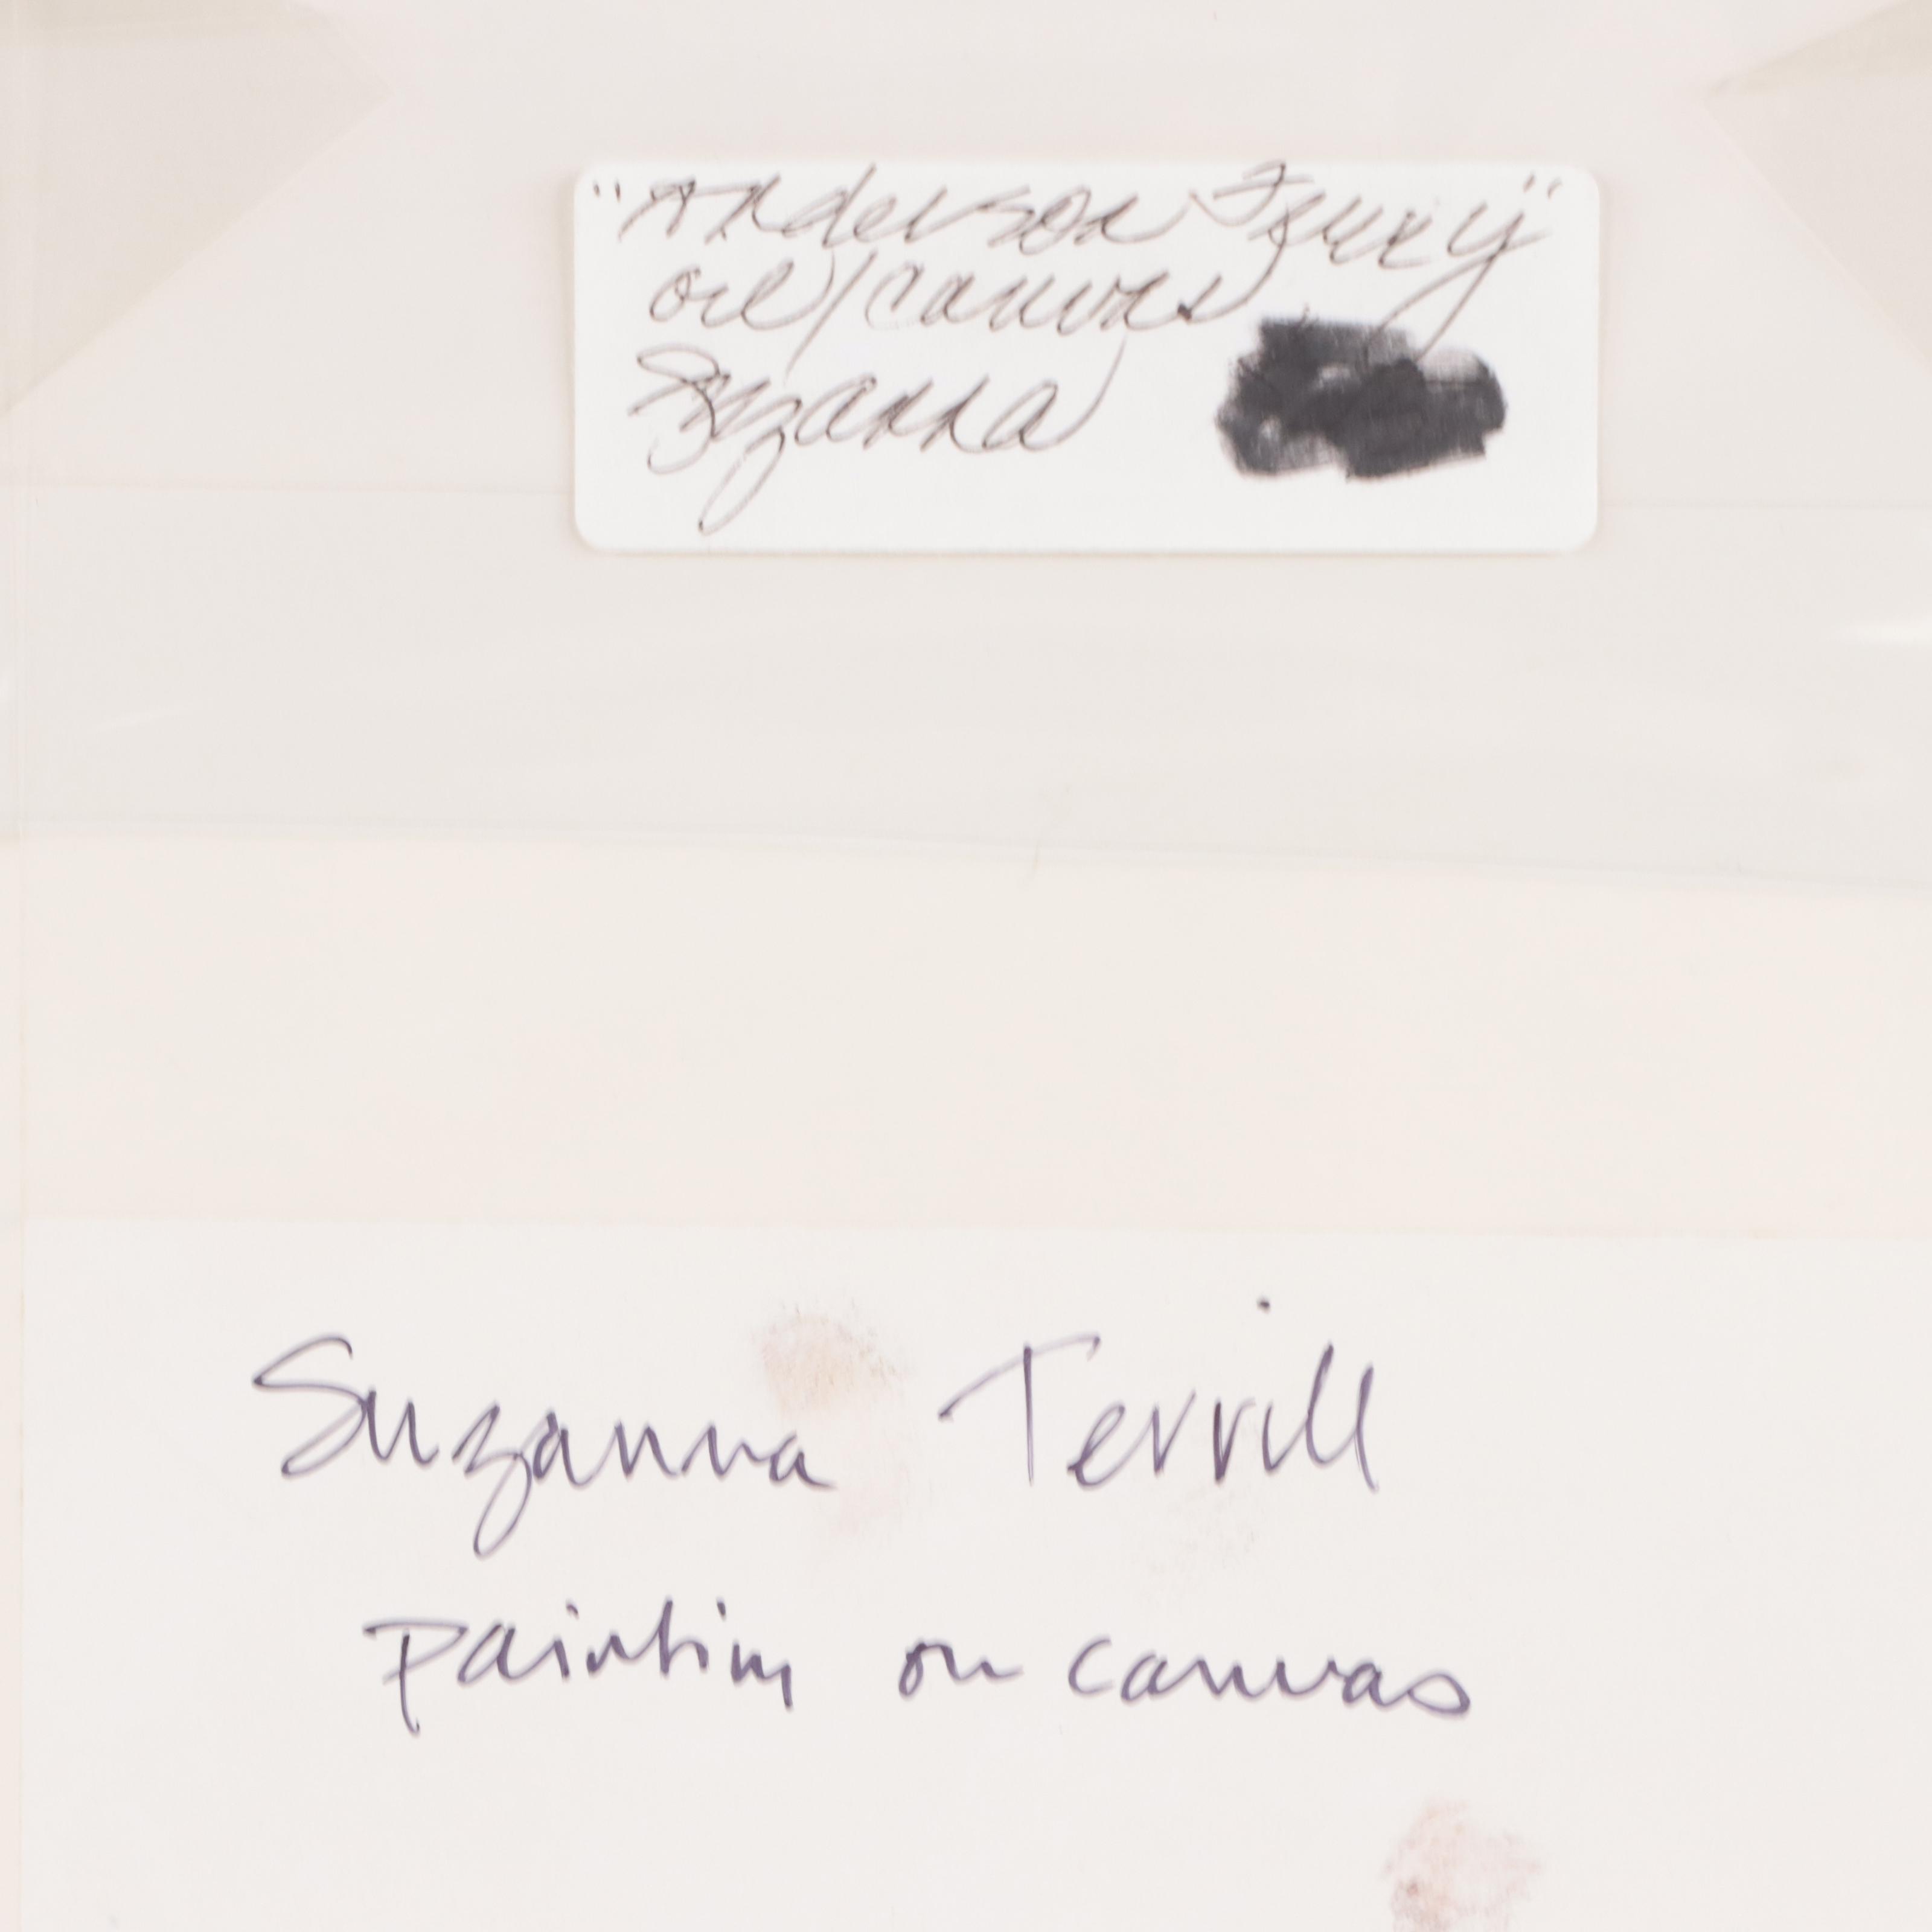 "Anderson Ferry"
oil/canvas
Suzanna
Suzanna Terrill
painting on canvas